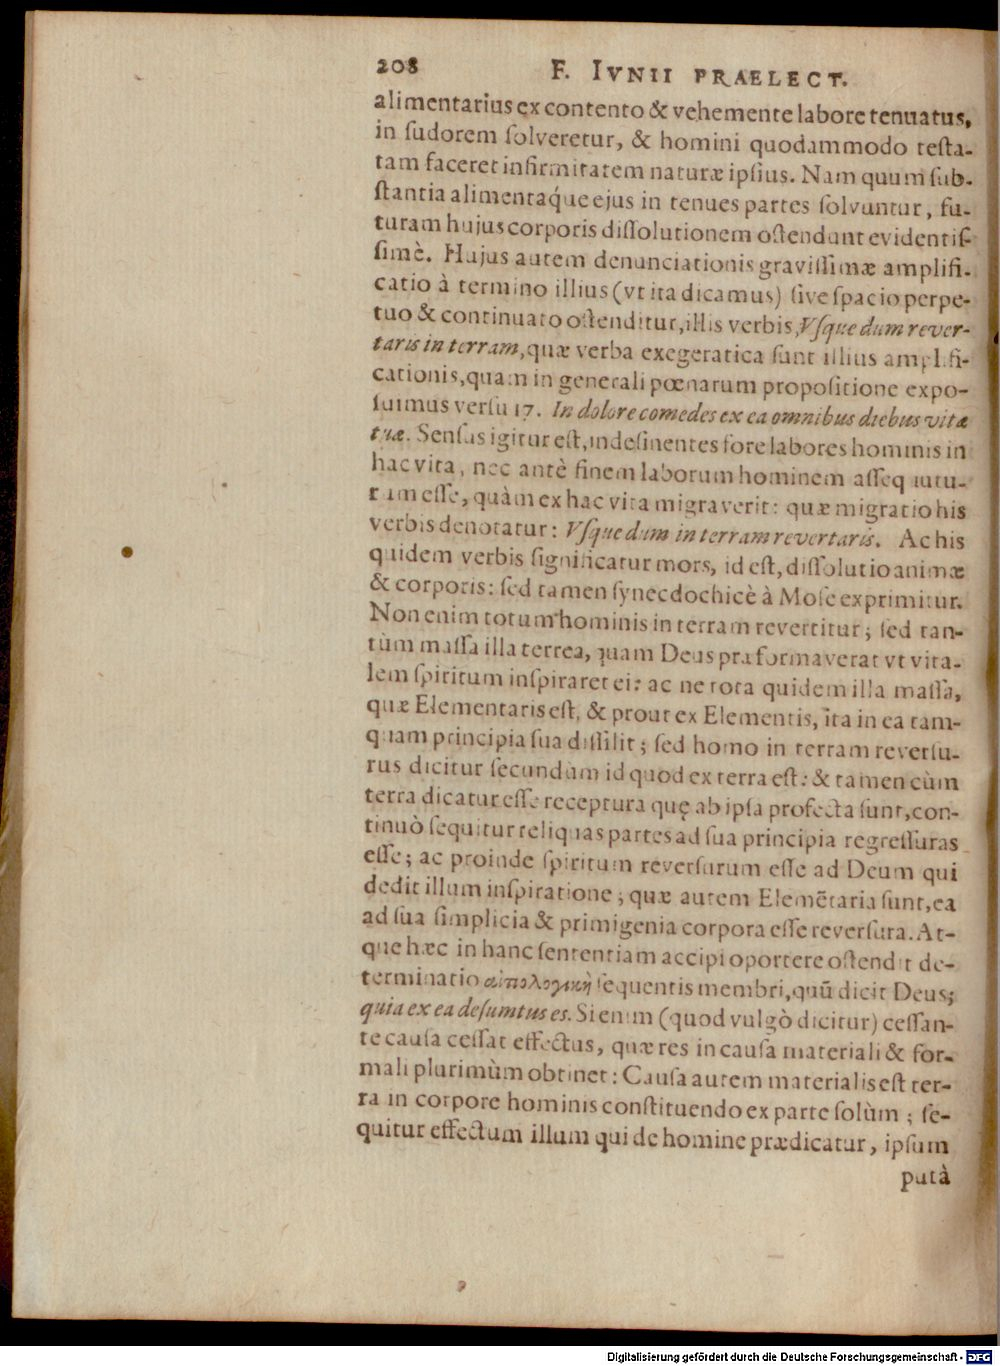 208 F. IVNII PRAELECT.
alimentarius ex contento & vehemente labore tenuatus,
in ſudorem ſolveretur, & homini quodammodo teſta-
tam faceret infirmitatem naturæ ipſius. Nam quum ſub-
ſtantia alimentaq́ue ejus in tenues partes ſolvuntur, fu-
turam hujus corporis diſſolutionem oſtendunt evidentiſ-
ſimè. Hujus autem denunciationis graviſſimæ amplifi-
catio à termino illius (vt ita dicamus) ſive ſpacio perpe-
tuo & continuato oſtenditur, illis verbis, Vſque dum rever-
taris in terram, quæ verba exegeratica ſunt illius amplifi-
cationis, quam in generali pœnarum propoſitione expo-
ſuimus verſu 17. In dolore comedes ex ea omnibus diebus vitæ
tuæ. Senſus igitur eſt, indeſinentes fore labores hominis in
hac vita, nec antè finem laborum hominem aſſequutu-
rum eſſe, quàm ex hac vita migraverit: quæ migratio his
verbis denotatur: Vſque dum in terram revertaris. Ac his
quidem verbis ſignificatur mors, id eſt, diſſolutio animæ
& corporis: ſed tamen ſynecdochicè à Moſe exprimitur.
Non enim totum hominis in terram revertitur; ſed tan-
tùm maſſa illa terrea, quam Deus præformaverat vt vita-
lem ſpiritum inſpiraret ei: ac ne tota quidem illa maſſa,
quæ Elementaris eſt, & prout ex Elementis, ita in ea tam-
quam principia ſua diſſilit; ſed homo in terram reverſu-
rus dicitur ſecundùm id quod ex terra eſt: & tamen cùm
terra dicatur eſſe receptura quę ab ipſa profecta ſunt, con-
tinuò ſequitur reliquas partes ad ſua principia regreſſuras
eſſe; ac proinde ſpiritum reverſurum eſſe ad Deum qui
dedit illum inſpiratione; quæ autem Elemẽtaria ſunt, ea
ad ſua ſimplicia & primigenia corpora eſſe reverſura. At-
que hæc in hanc ſententiam accipi oportere oſtendit de-
terminatio αἰτιολογικὴ ſequentis membri, quũ dicit Deus;
quia ex ea deſumtus es. Si enim (quod vulgò dicitur) ceſſan-
te cauſa ceſſat effectus, quæ res in cauſa materiali & for-
mali plurimùm obtinet: Cauſa autem materialis eſt ter-
ra in corpore hominis conſtituendo ex parte ſolùm; ſe-
quitur effectum illum qui de homine prædicatur, ipſum
putà
Digitalisierung gefördert durch die Deutsche Forschungsgemeinschaft - DFG